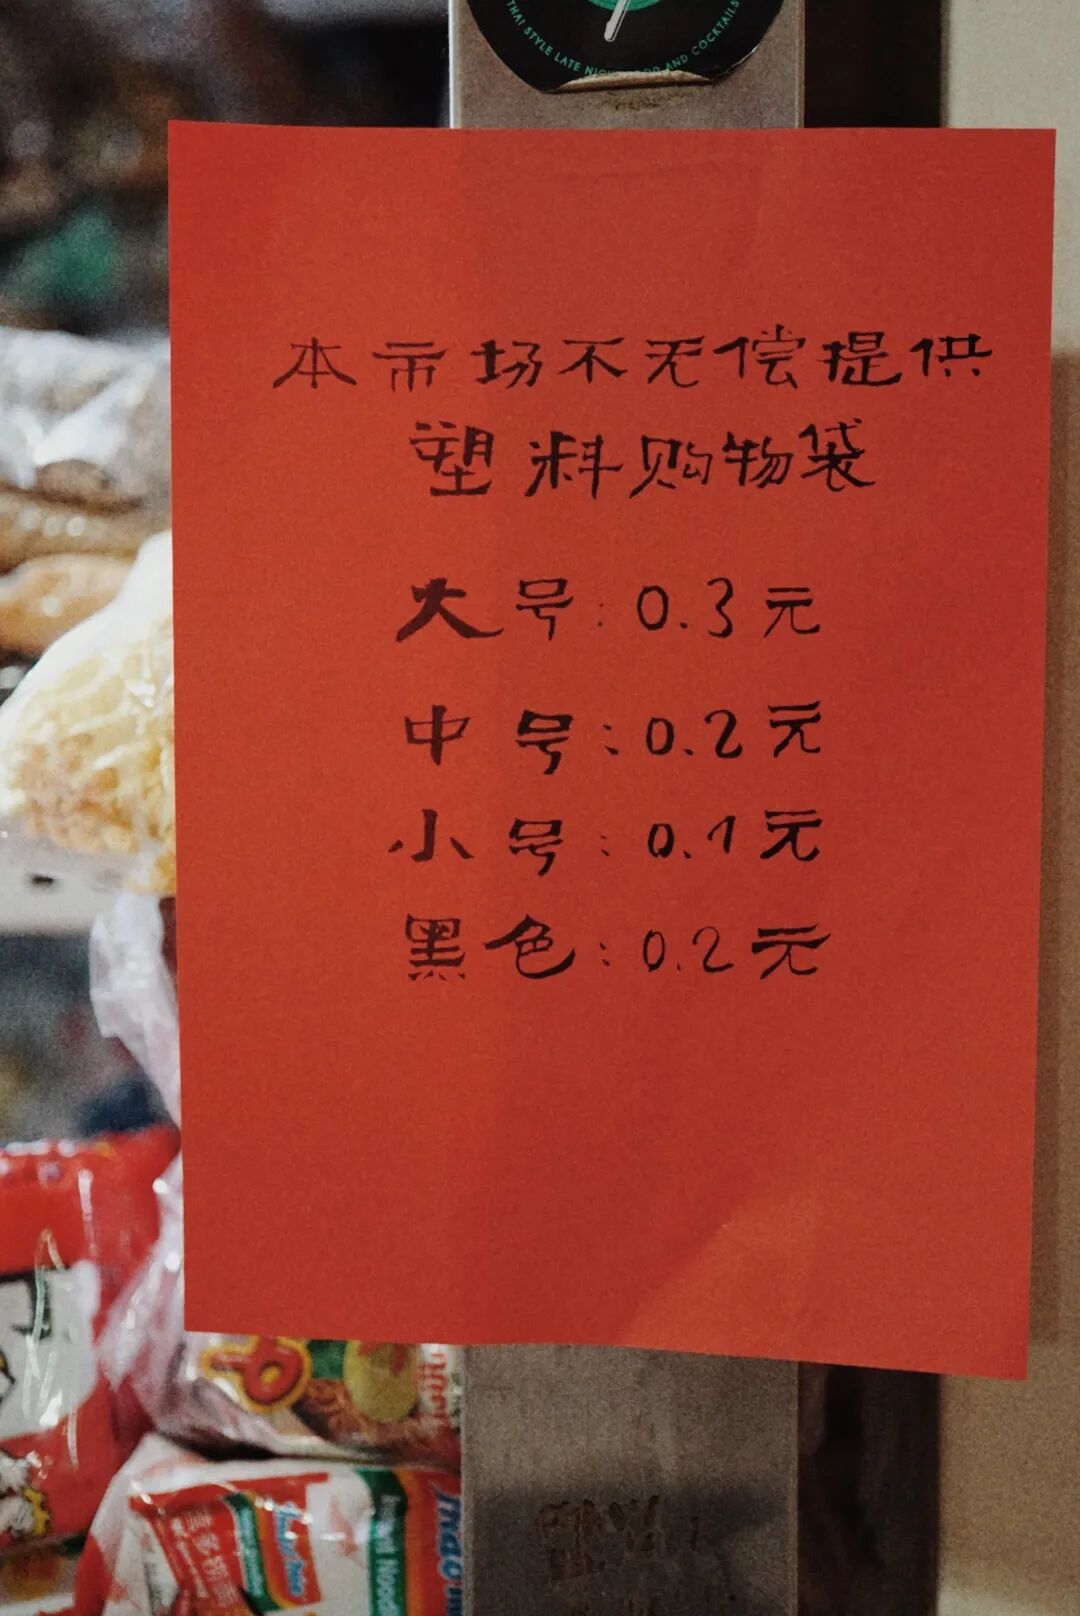 THAI STYLE LATE NIGHT FOOD AND COCKTAILS
本市场不无偿提供
塑料购物袋
大号:0.3元
中号:0.2元
小号:0.1元
黑色:0.2元
Instant Noodles